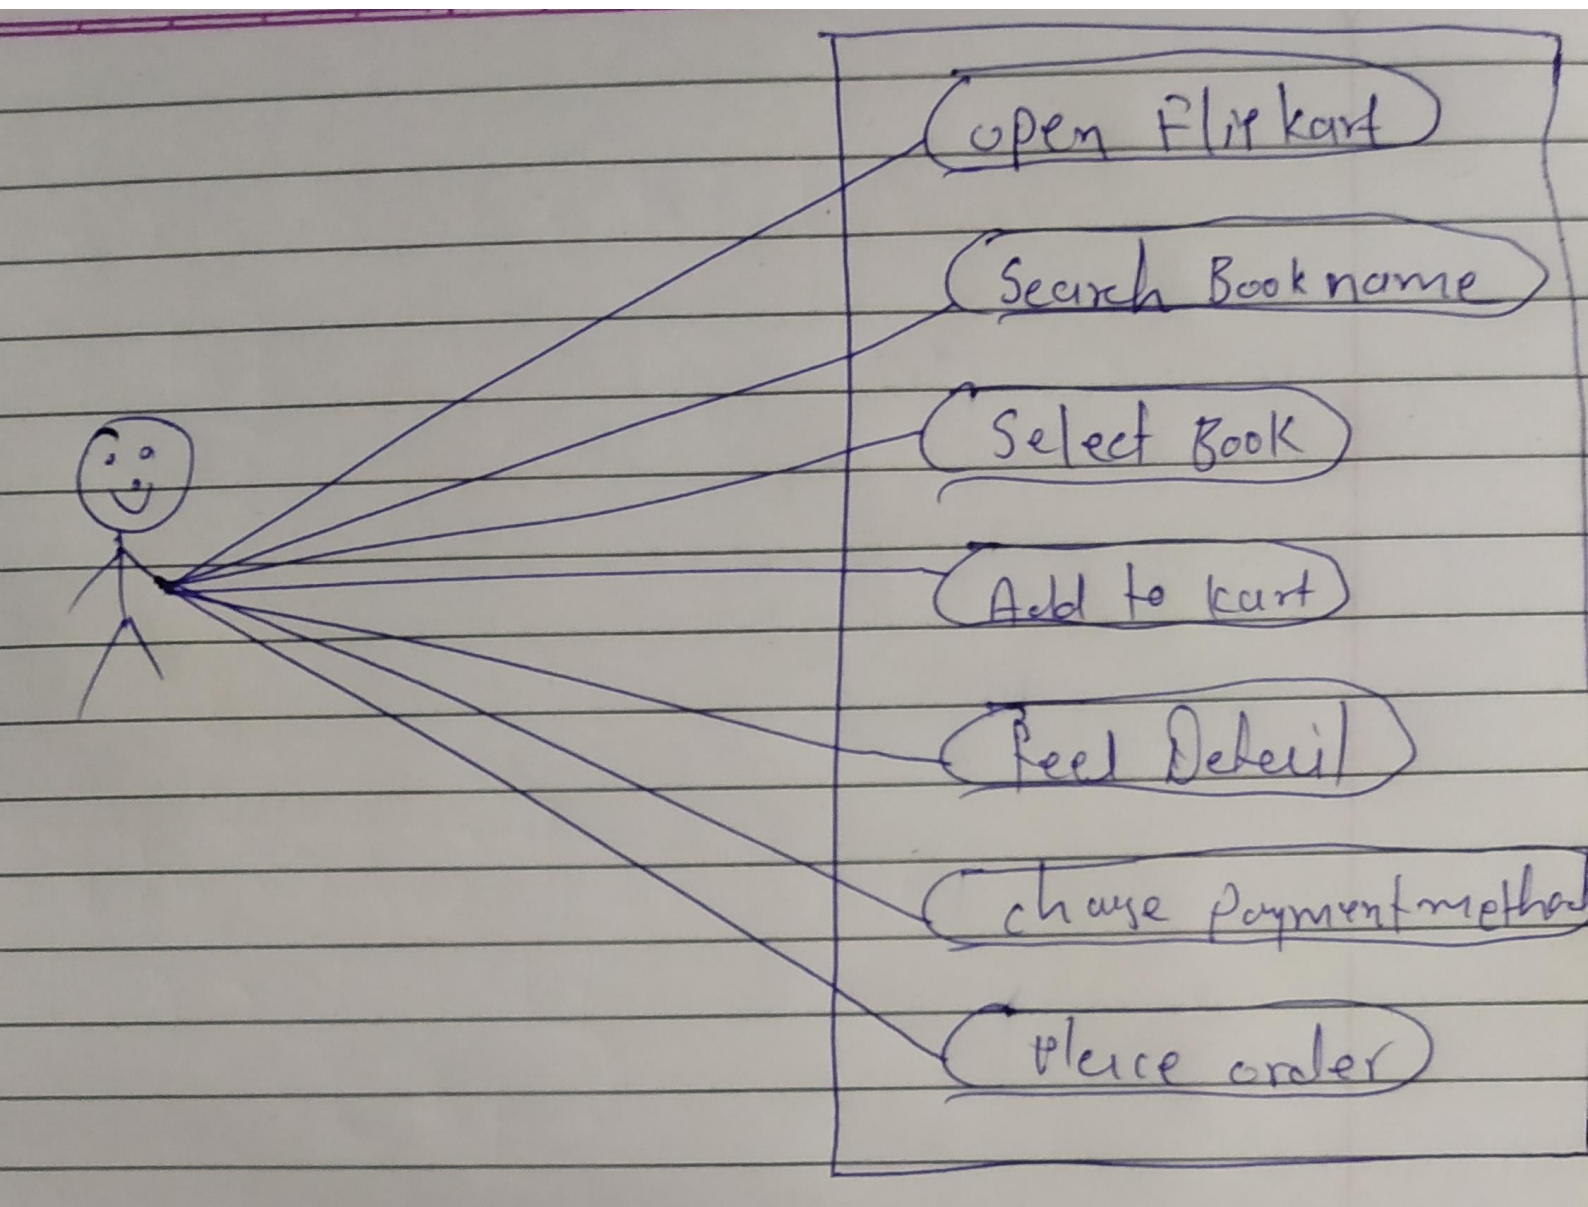 open Flipkart
Search Book name
Select Book
Add to kart
feel Detail
chouse paymentmethod
Place order